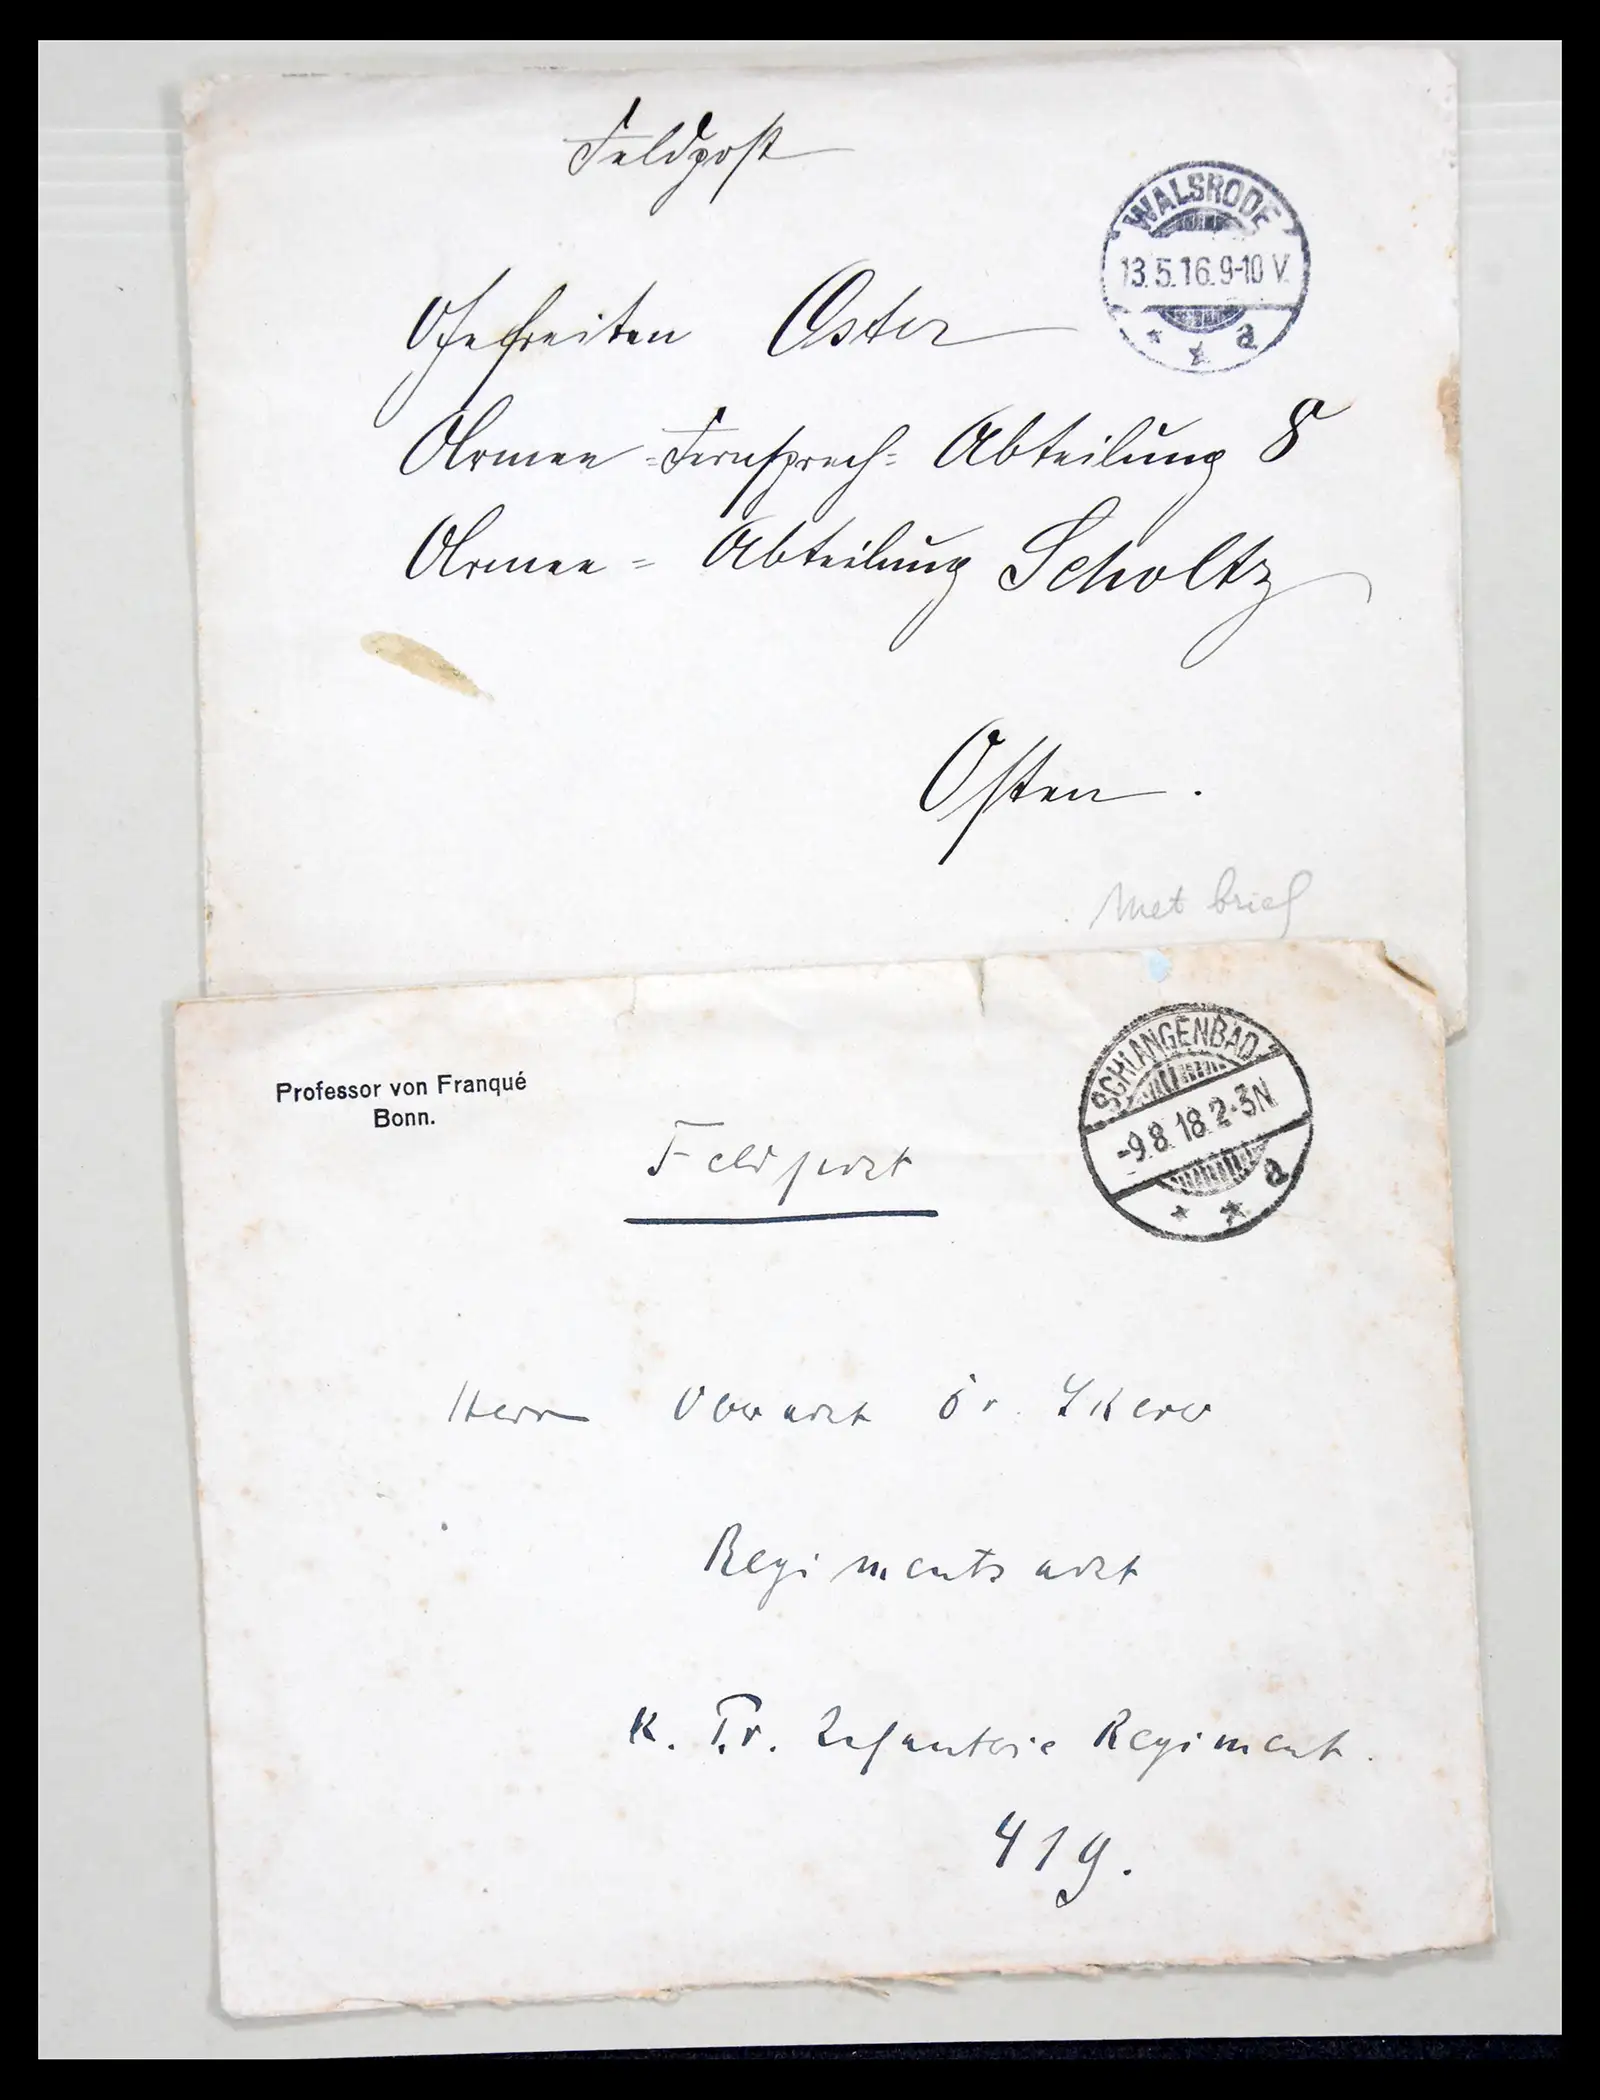 Feldpost
WALSRODE
13.5.16.9-10 V.
* * a
Gefreiten Oster
Armee=Fernsprech=Abteilung 8
Armee=Abteilung Scholtz
Osten.
Met brief
Professor von Franqué
Bonn.
SCHLANGENBAD
-9.8.18.2-3N
* * a
Feldpost
Herrn Oberarzt Dr.
Regimentsarzt
K. Pr. Infanterie Regiment.
419.